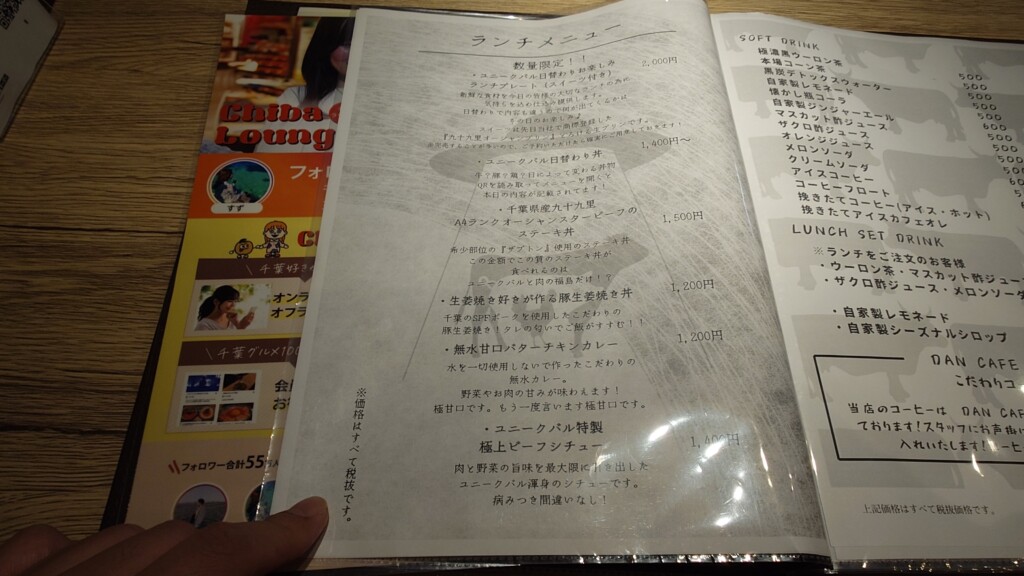 ランチメニュー
数量限定！！
・ユニークバル日替わりお楽しみ
ランチプレート(スイーツ付き)
2,000円
・ユニークバル日替わり丼
1,400円～
QRを読み取ってメニューを開くと
本日の内容が記載されてます！
・千葉県産九十九里
A4ランクオーシャンスタービーフの
ステーキ丼
1,500円
希少部位の『ザブトン』使用のステーキ丼
この金額でこの質のステーキ丼が
食べれるのは
ユニークバルと肉の福島だけ！？
・生姜焼き好きが作る豚生姜焼き丼
1,200円
千葉のSPFポークを使用したこだわりの
豚生姜焼き！タレの匂いでご飯がすすむ！！
・無水甘口バターチキンカレー
1,200円
水を一切使用しないで作ったこだわりの
無水カレー。
野菜やお肉の甘みが味わえます！
極甘口です。もう一度言います極甘口です。
・ユニークバル特製
極上ビーフシチュー
1,400円
肉と野菜の旨味を最大限に引き出した
ユニークバル渾身のシチューです。
病みつき間違いなし！
※価格はすべて税抜です。
SOFT DRINK
極濃黒ウーロン茶
本場コーン茶
黒炭デトックスウォーター
自家製レモネード
懐かし瓶コーラ
自家製ジンジャーエール
マスカット酢ジュース
ザクロ酢ジュース
オレンジジュース
メロンソーダ
クリームソーダ
アイスコーヒー
コーヒーフロート
挽きたてコーヒー(アイス・ホット)
挽きたてアイスカフェオレ
500
500
500
500
600
500
500
500
LUNCH SET DRINK
※ランチをご注文のお客様
・ウーロン茶・マスカット酢ジュー
・ザクロ酢ジュース・メロンソーダ
・自家製レモネード
・自家製シーズナルシロップ
DAN CAFE
こだわりコ
当店のコーヒーは DAN CAF
ております!スタッフにお声掛け
入れいたします!
上記価格はすべて税抜価格です。
Chiba
Loung
フォロ
すず
千葉好き
オンラ
オフラ
\千葉グルメ100
会
お
フォロワー合計55万